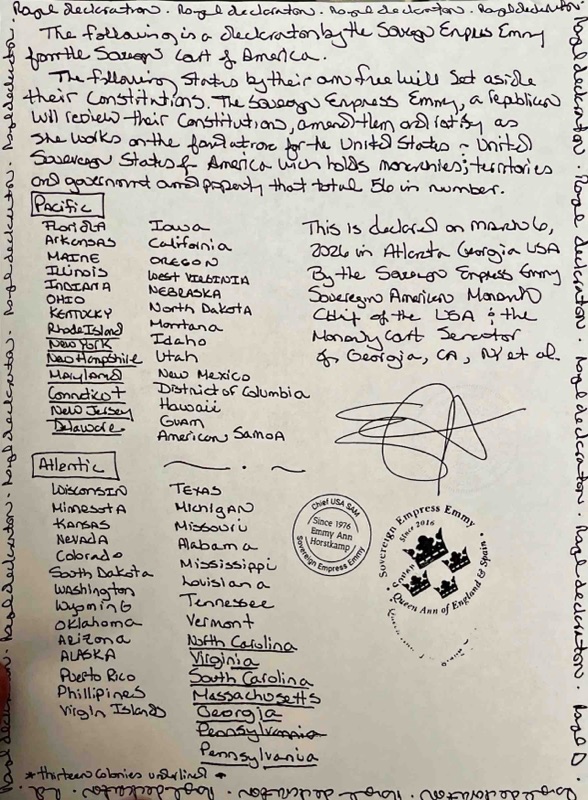 Royal declaration. Royal declaration. Royal declaration. Royal declaration.
The following is a declaration by the Sovereign Empress Emmy
from the Sovereign Court of America.
The following States by their own free will set aside
their Constitutions. The Sovereign Empress Emmy, a republican
will review their Constitutions, amend them and ratify as
she works on the for the United States ~ United
Sovereign States of America wich holds monarchies; territories
and government and property that total 56 in number.
Pacific
FLORIDA
ARKANSAS
MAINE
ILLINOIS
INDIANA
OHIO
KENTUCKY
Rhode Island
New York
New Hampshire
Maryland
Connecticut
New Jersey
Delaware
Iowa
California
OREGON
WEST VIRGINIA
NEBRASKA
North Dakota
Montana
Idaho
Utah
New Mexico
District of Columbia
Hawaii
Guam
American Samoa
This is declared on March 6,
2026 in Atlanta Georgia USA
By the Sovereign Empress Emmy
Sovereign American Monarch
Chief of the USA & the
Monarchy Court Senator
of Georgia, CA, NY et al.
Atlentic
Wisconsin
Minnesota
Kansas
Nevada
Colorado
South Dakota
Washington
Wyoming
Oklahoma
Arizona
ALASKA
Puerto Rico
Phillipines
Virgin Islands
TEXAS
Michigan
Missouri
Alabama
Mississippi
Louisiana
Tennessee
Vermont
North Carolina
Virginia
South Carolina
Massachusetts
Georgia
Pennsylvania
Pennsylvania
Chief USA SAM
Since 1976
Emmy Ann
Horstkamp
Sovereign Empress Emmy
Sovereign Empress Emmy
Since 2016
Queen Ann of England & Spain
* thirteen colonies underlined *